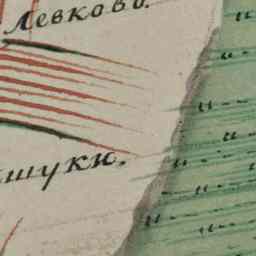 Левково.
шуки.